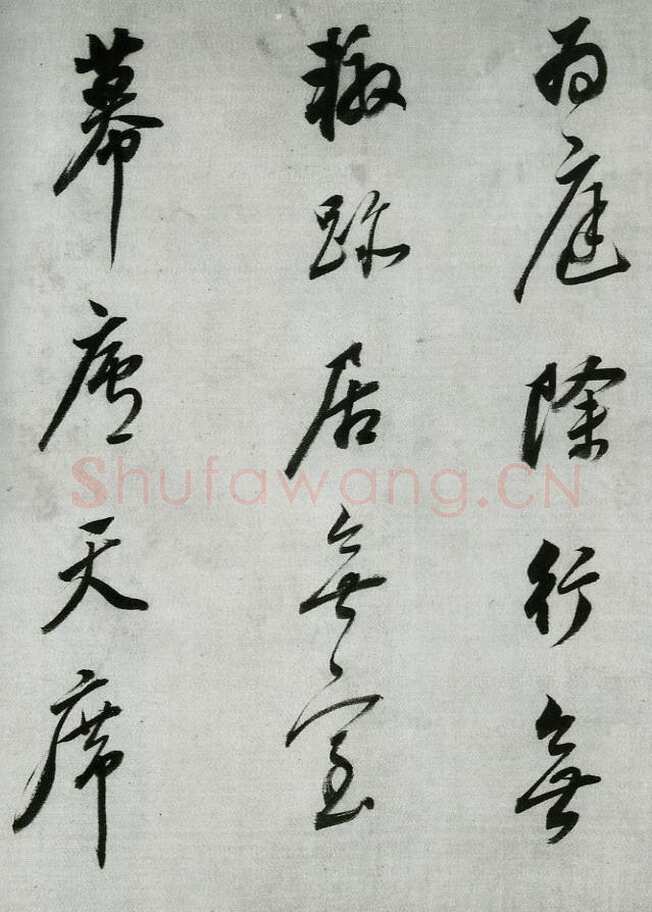 為庭除行無
轍跡居無室
幕廬天席
Shufawang.CN